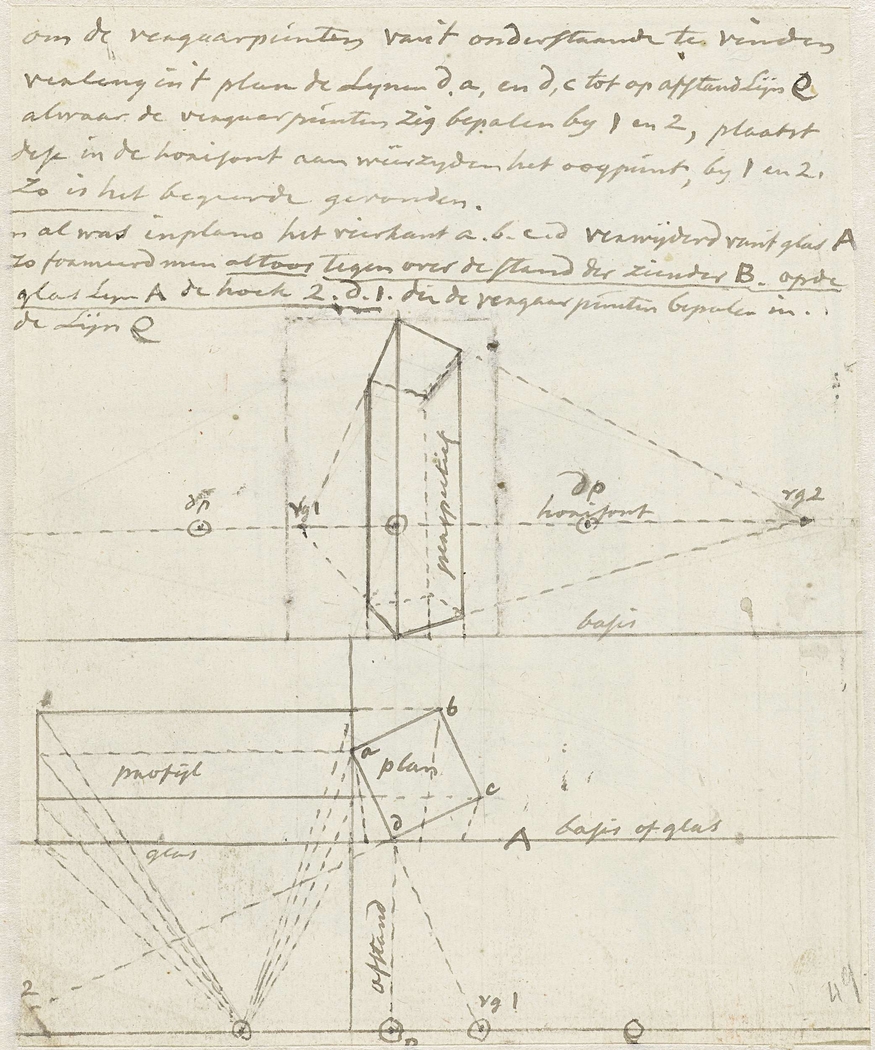 om de vergaarpunten van't onderstaande te vinden
verleng in't plan de Lynen d, a, en d, c tot op afstand Lijn C
alwaar de vergaarpunten zig bepalen by 1 en 2, plaatst
deze in de horisont aan wierzyden het oogpunt, by 1 en 2.
Zo is het begeerde gevonden.
al was inplano het vierkant a. b. c. d verwyderd van't glas A
zo formeerd men altoos tegen over de stand der ziender B. op de
glas Lyn A de hoek 2. d. 1. die de vergaarpunten bepalen in..
de Lijn C
dp
vg1
perspectief
dp
horisont
vg2
basis
b
a
plan
profijl
c
d
basis of glas
A
glas
afstand
2
vg 1
49